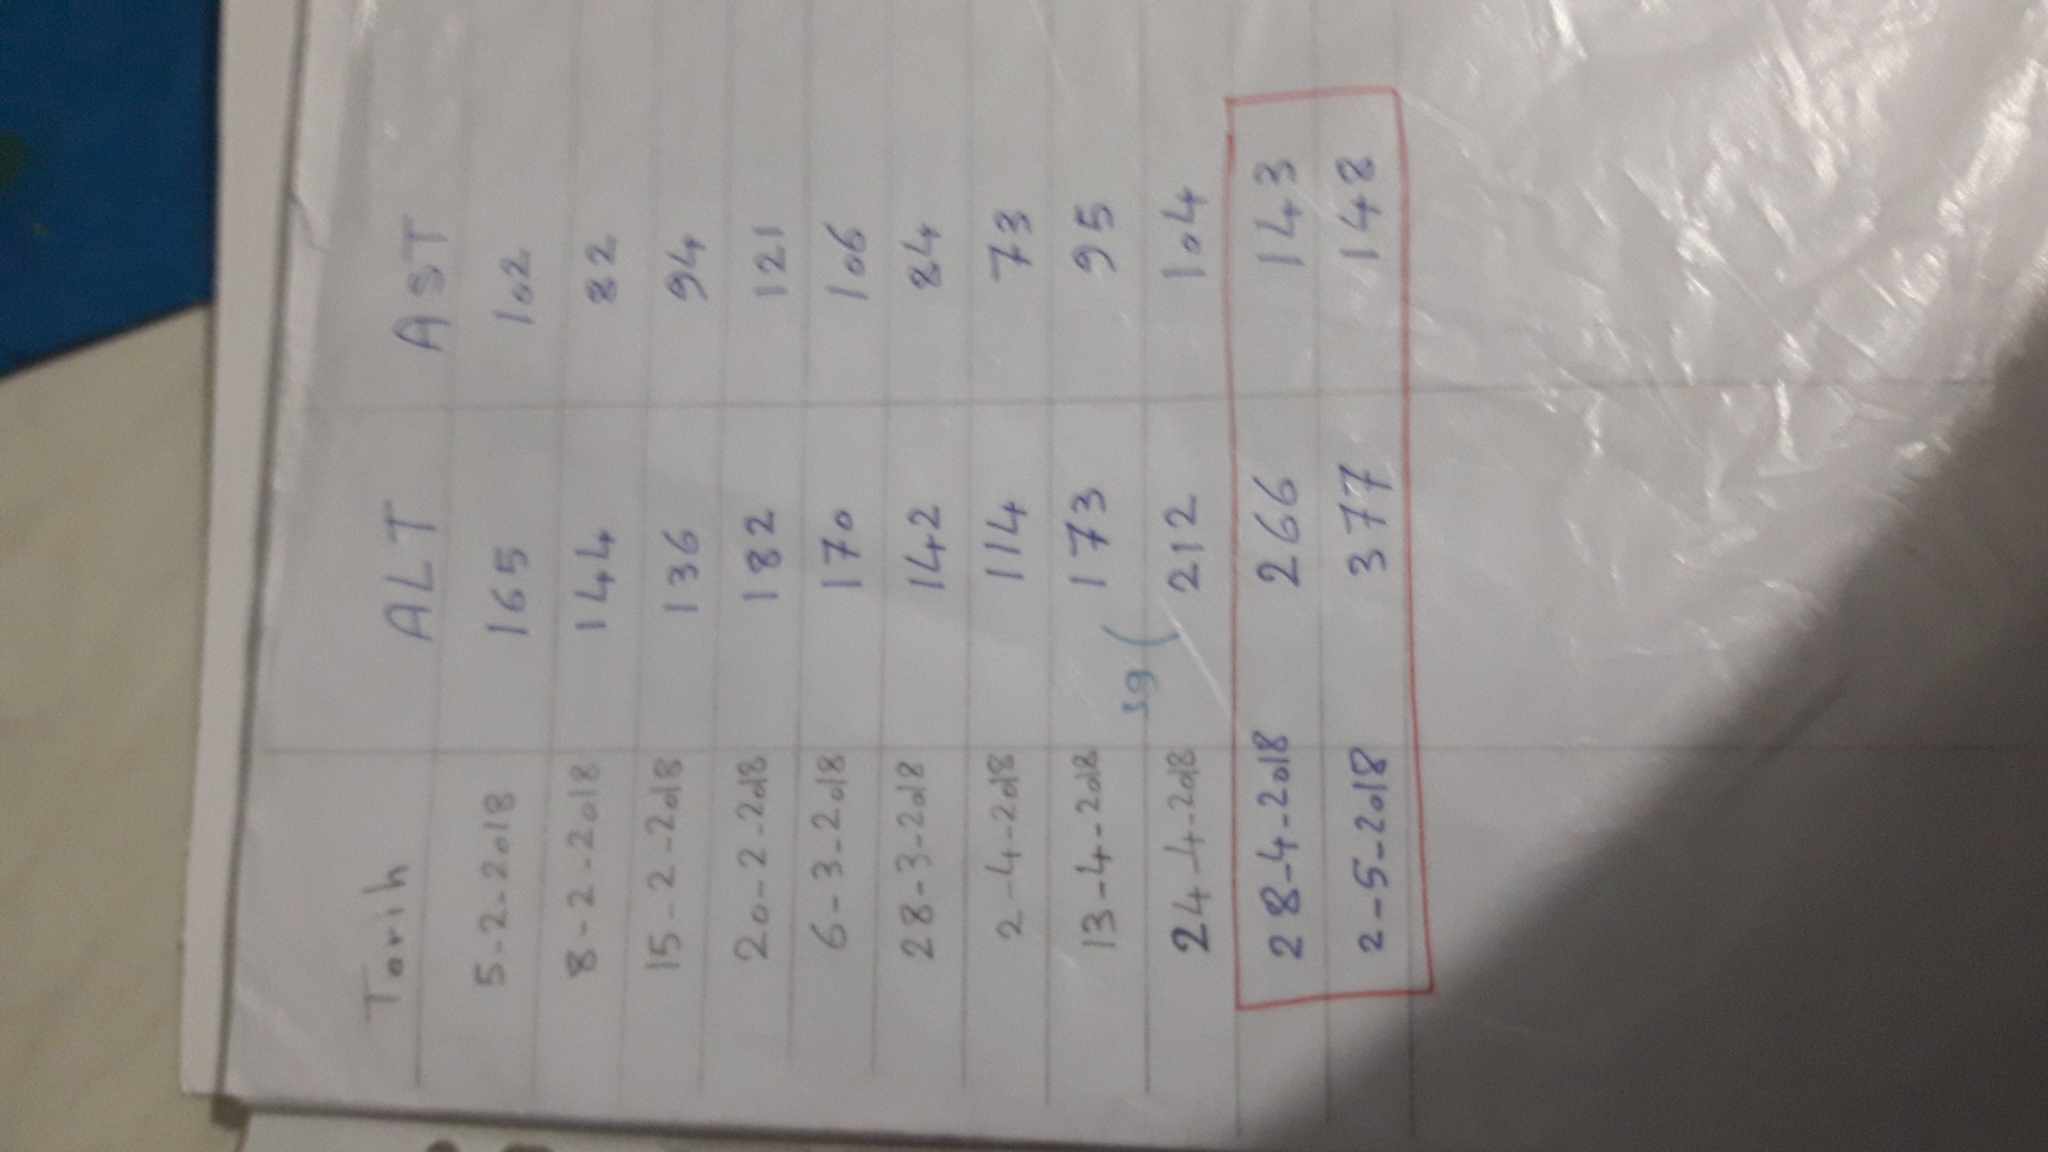 Tarih ALT AST
5-2-2018 165 102
8-2-2018 144 82
15-2-2018 136 94
20-2-2018 182 121
6-3-2018 170 106
28-3-2018 142 84
2-4-2018 114 73
13-4-2018 173 95
24-4-2018 212 104
28-4-2018 266 143
2-5-2018 377 148